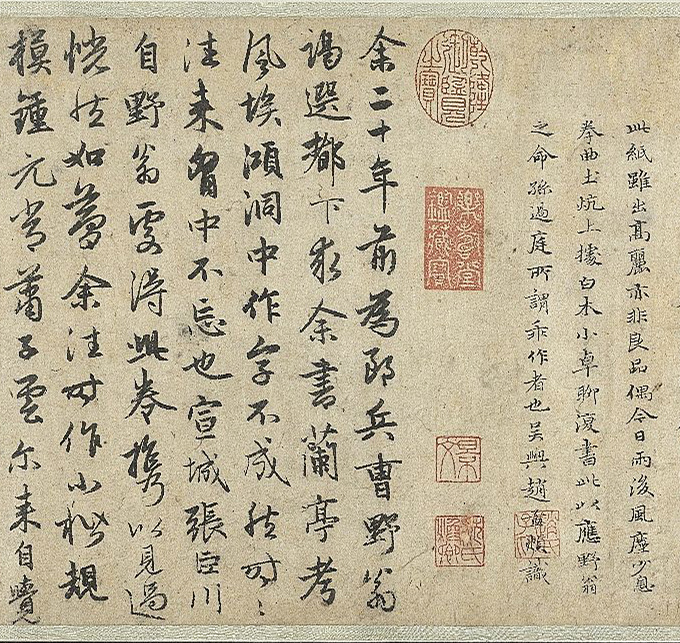 此紙雖出高麗亦非良品偶今日雨後風塵少息
拳曲土炕上據白木小卓聊復書此以應野翁
之命孫過庭所謂乖作者也吳興趙孟頫識
趙氏子昂
乾隆御覽之寶
樂善堂圖書記
景文
余二十年前為郎兵曹野翁
謁選都下求余書蘭亭考
風埃澒洞中作字不成然時々
往来胷中不忘也宣城張臣川
自野翁處得此卷携以見過
恍然如夢余往時作小楷規
模鍾元常蕭子雲尔来自覺